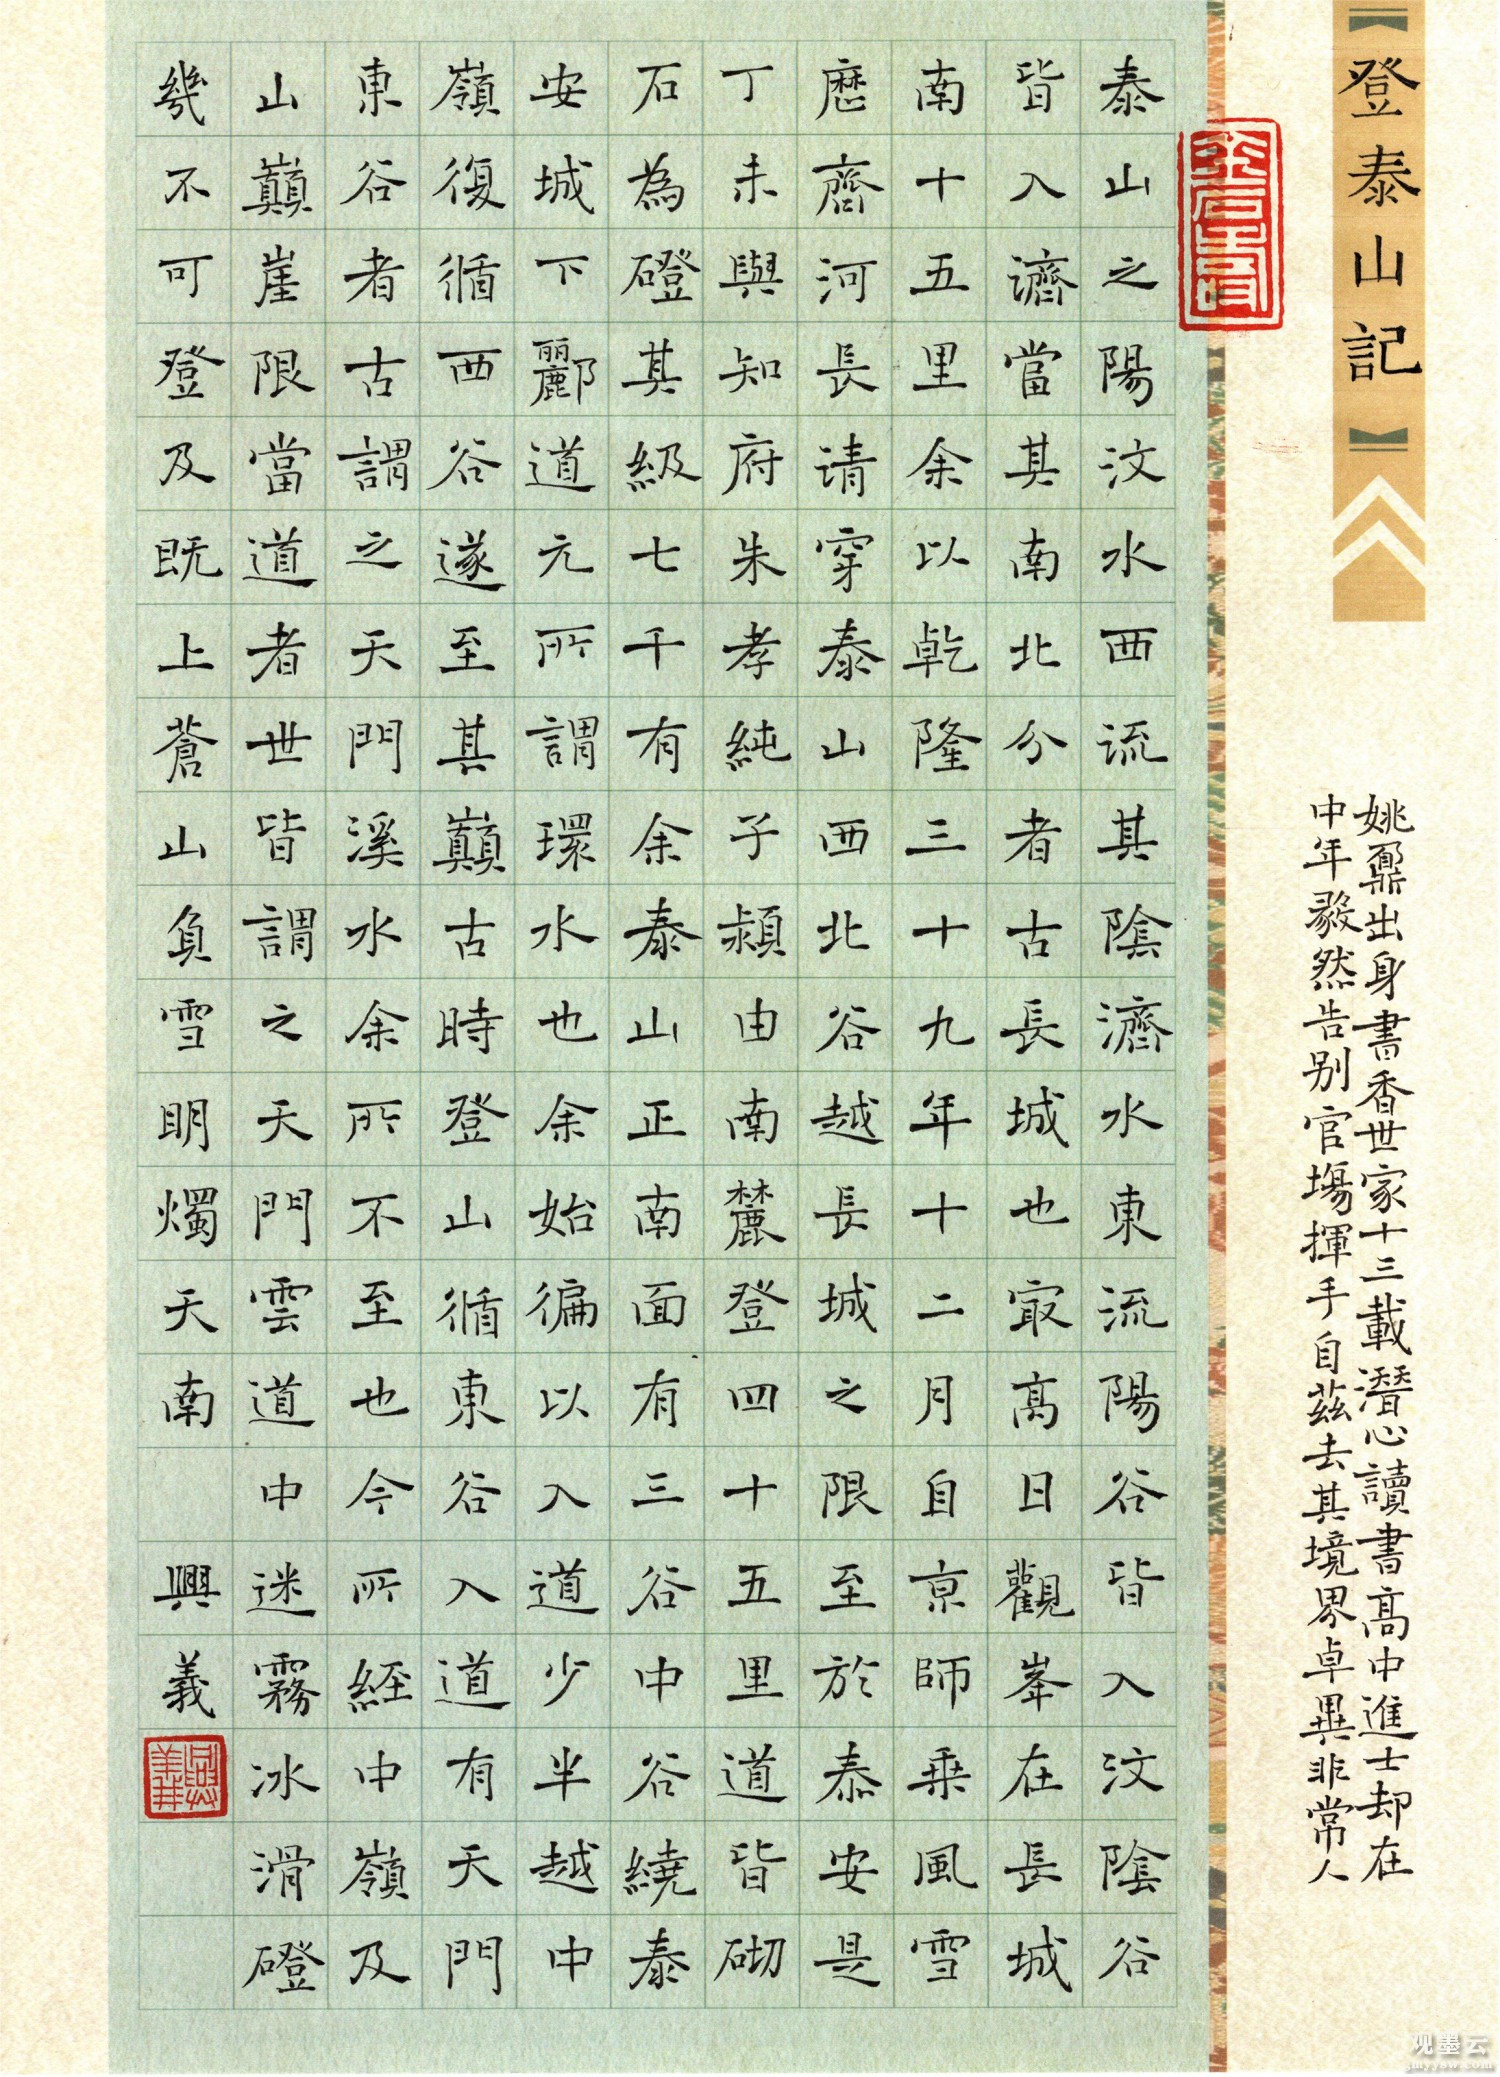 登泰山記
姚鼐出身書香世家十三載潛心讀書高中進士却在
中年毅然告别官場揮手自茲去其境界卓異非常人
泰山之陽汶水西流其陰濟水東流陽谷皆入汶陰谷
皆入濟當其南北分者古長城也冣高日觀峯在長城
南十五里余以乾隆三十九年十二月自京師乗風雪
歷齊河長请穿泰山西北谷越長城之限至於泰安是
丁未與知府朱孝純子潁由南麓登四十五里道皆砌
石為磴其級七千有余泰山正南面有三谷中谷繞泰
安城下酈道元所謂環水也余始循以入道少半越中
嶺復循西谷遂至其巔古時登山循東谷入道有天門
東谷者古謂之天門溪水余所不至也今所經中嶺及
山巔崖限當道者世皆謂之天門雲道中迷霧冰滑磴
幾不可登及既上蒼山負雪明燭天南 興義
观墨云
jmyysw.com